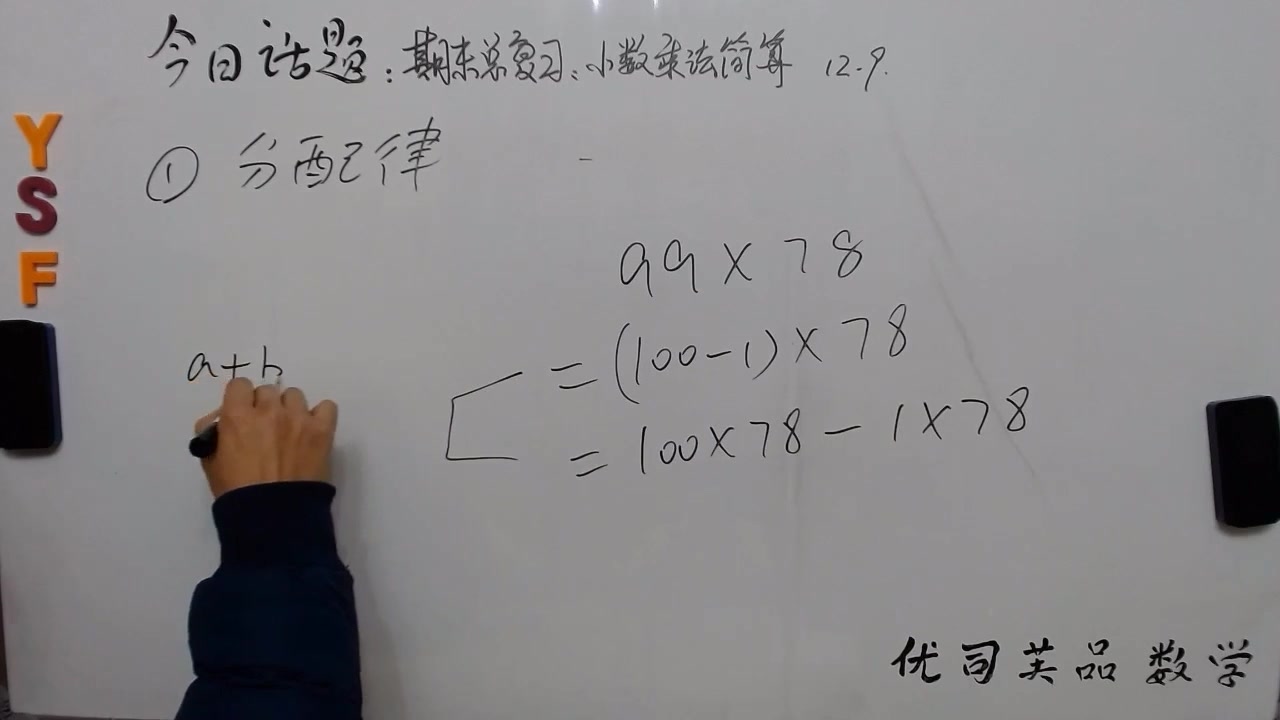 今日话题：期末总复习：小数乘法简算 12.9.
YSF
① 分配律
99×78
=(100-1)×78
=100×78-1×78
a+b
优司英品数学